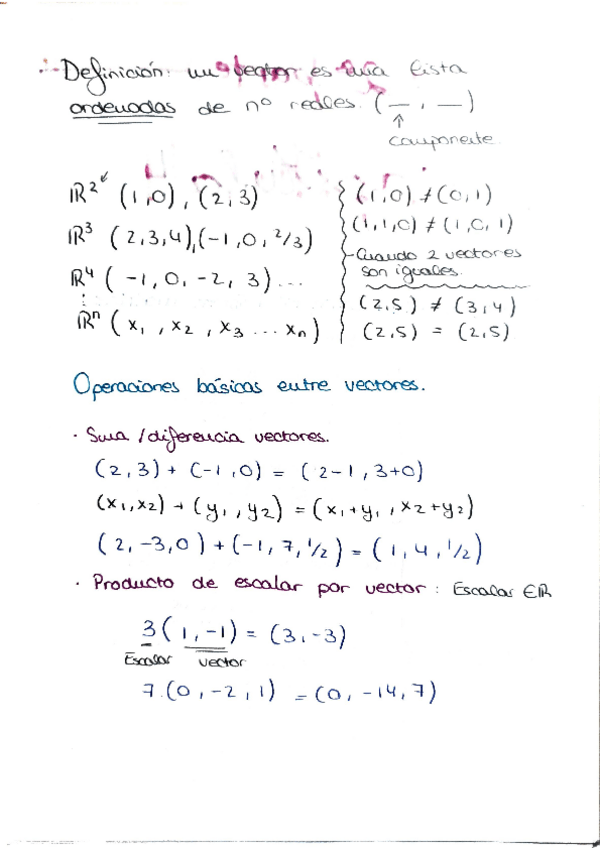 Definición: un vector es una lista
ordenadas de nº reales. ( _ , _ )
↑
componente
ℝ² (1,0), (2,3)
ℝ³ (2,3,4), (-1,0,2/3)
ℝ⁴ (-1, 0, -2, 3)...
ℝⁿ (x₁, x₂, x₃ ... xₙ)
(1,0) ≠ (0,1)
(1,1,0) ≠ (1,0,1)
- Cuando 2 vectores
son iguales.
(2,5) ≠ (3,4)
(2,5) = (2,5)
Operaciones básicas entre vectores.
· Suma /diferencia vectores.
(2,3) + (-1,0) = (2-1, 3+0)
(x₁,x₂) + (y₁,y₂) = (x₁+y₁, x₂+y₂)
(2,-3,0) + (-1,7,1/2) = (1,4,1/2)
· Producto de escalar por vector: Escalar ∈ ℝ
3(1,-1) = (3,-3)
Escalar vector
7·(0,-2,1) = (0,-14,7)